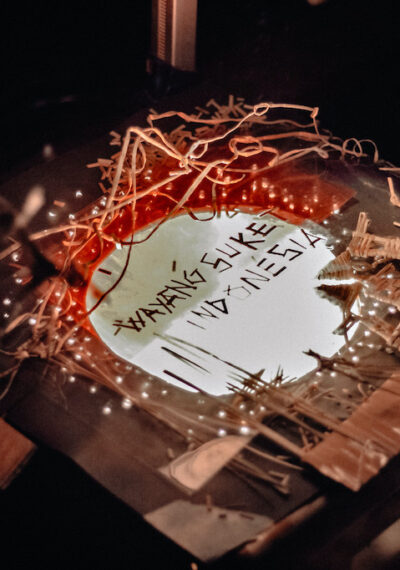 WAYANG SUKET
INDONESIA